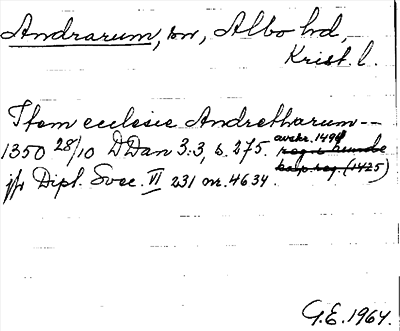 Andrarum, sn, Albo hd,
Krist. l.
Item ecclesie Andretharum --
1350 28/10 DDan 3:3, s. 275. avskr. 1494
jfr Dipl. Svec. VI 231 nr. 4634. (1425)
G.E. 1964.